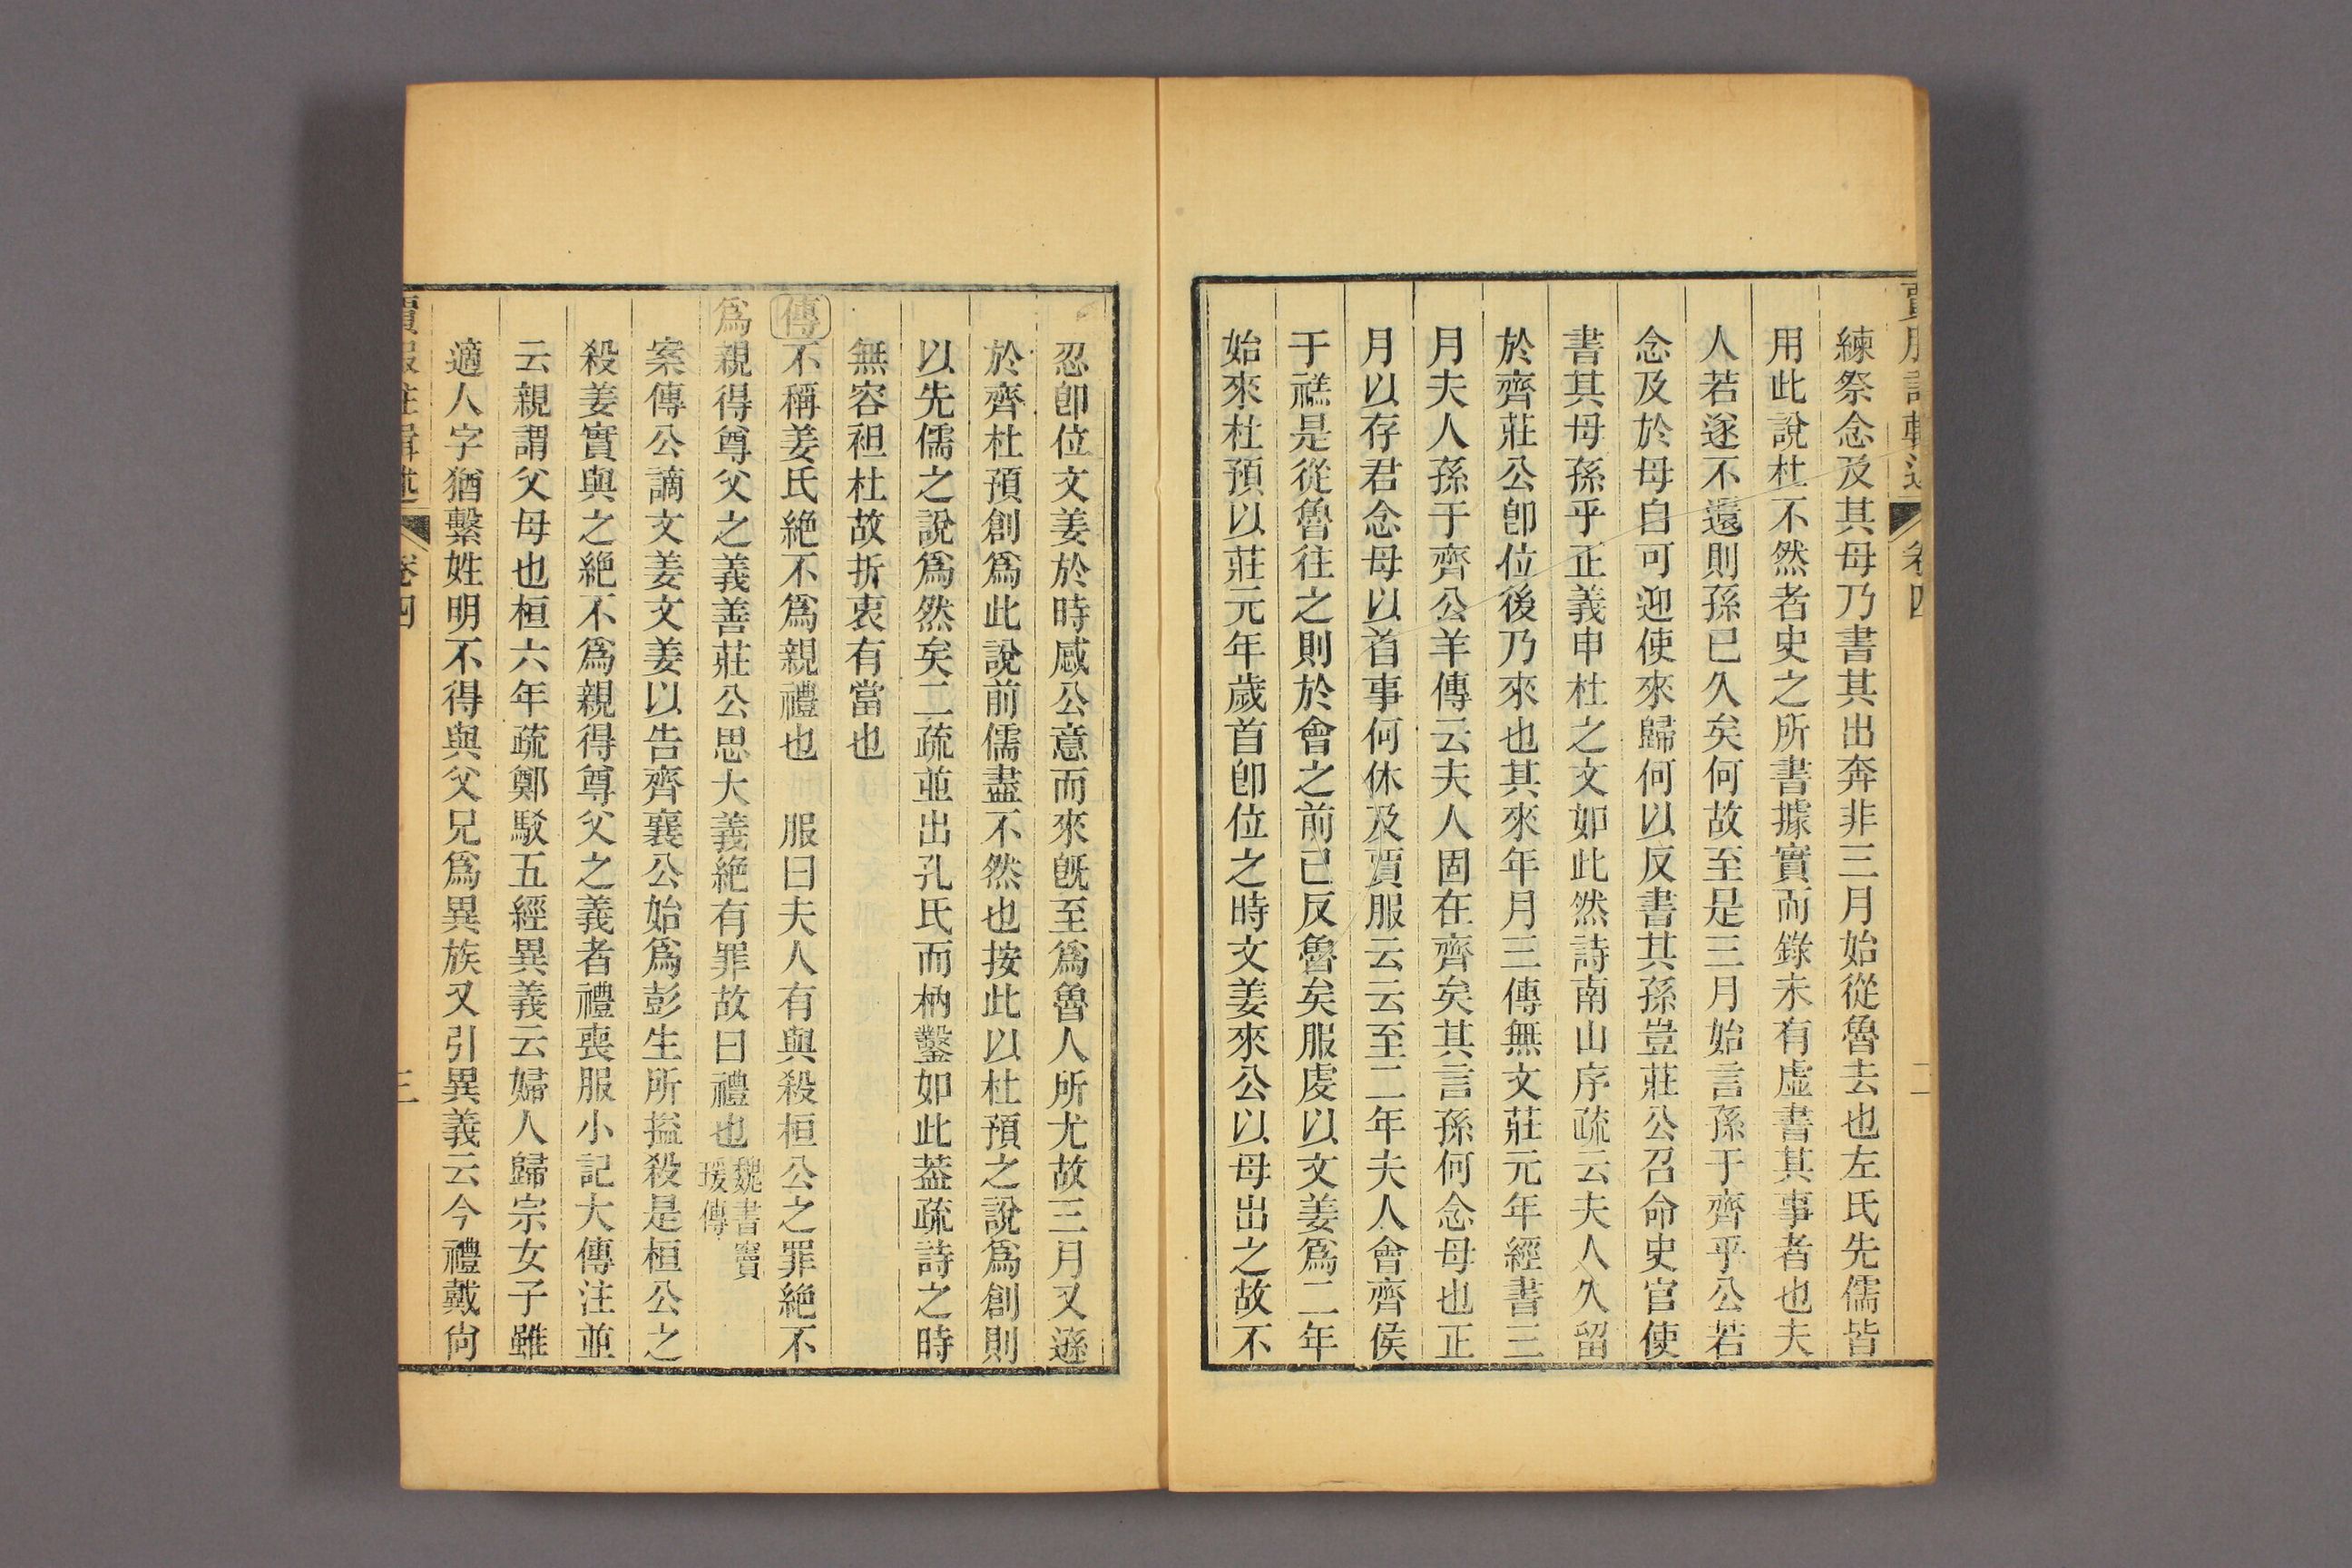 練祭念及其母乃書其出奔非三月始從魯去也左氏先儒皆
用此說杜不然者史之所書據實而錄未有虛書其事者也夫
人若遂不還則孫已久矣何故至是三月始言孫于齊乎公若
念及於母自可迎使來歸何以反書其孫豈莊公召命史官使
書其母孫乎正義申杜之文如此然詩南山序疏云夫人久留
於齊莊公卽位後乃來也其來年月三傳無文莊元年經書三
月夫人孫于齊公羊傳云夫人固在齊矣其言孫何念母也正
月以存君念母以首事何休及賈服云云至二年夫人會齊侯
于禚是從魯往之則於會之前已反魯矣服虔以文姜爲二年
始來杜預以莊元年歲首卽位之時文姜來公以母出之故不
忍卽位文姜於時感公意而來旣至爲魯人所尤故三月又遜
於齊杜預創爲此說前儒盡不然也按此以杜預之說爲創則
以先儒之說爲然矣二疏並出孔氏而枘鑿如此葢疏詩之時
無容袒杜故折衷有當也
傳不稱姜氏絶不爲親禮也 服曰夫人有與殺桓公之罪絶不
爲親得尊父之義善莊公思大義絶有罪故曰禮也魏書竇瑗傳
案傳公謫文姜文姜以告齊襄公始爲彭生所搤殺是桓公之
殺姜實與之絶不爲親得尊父之義者禮喪服小記大傳注並
云親謂父母也桓六年疏鄭駁五經異義云婦人歸宗女子雖
適人字猶繫姓明不得與父兄爲異族又引異義云今禮戴尙
賈服註輯述 卷四 三